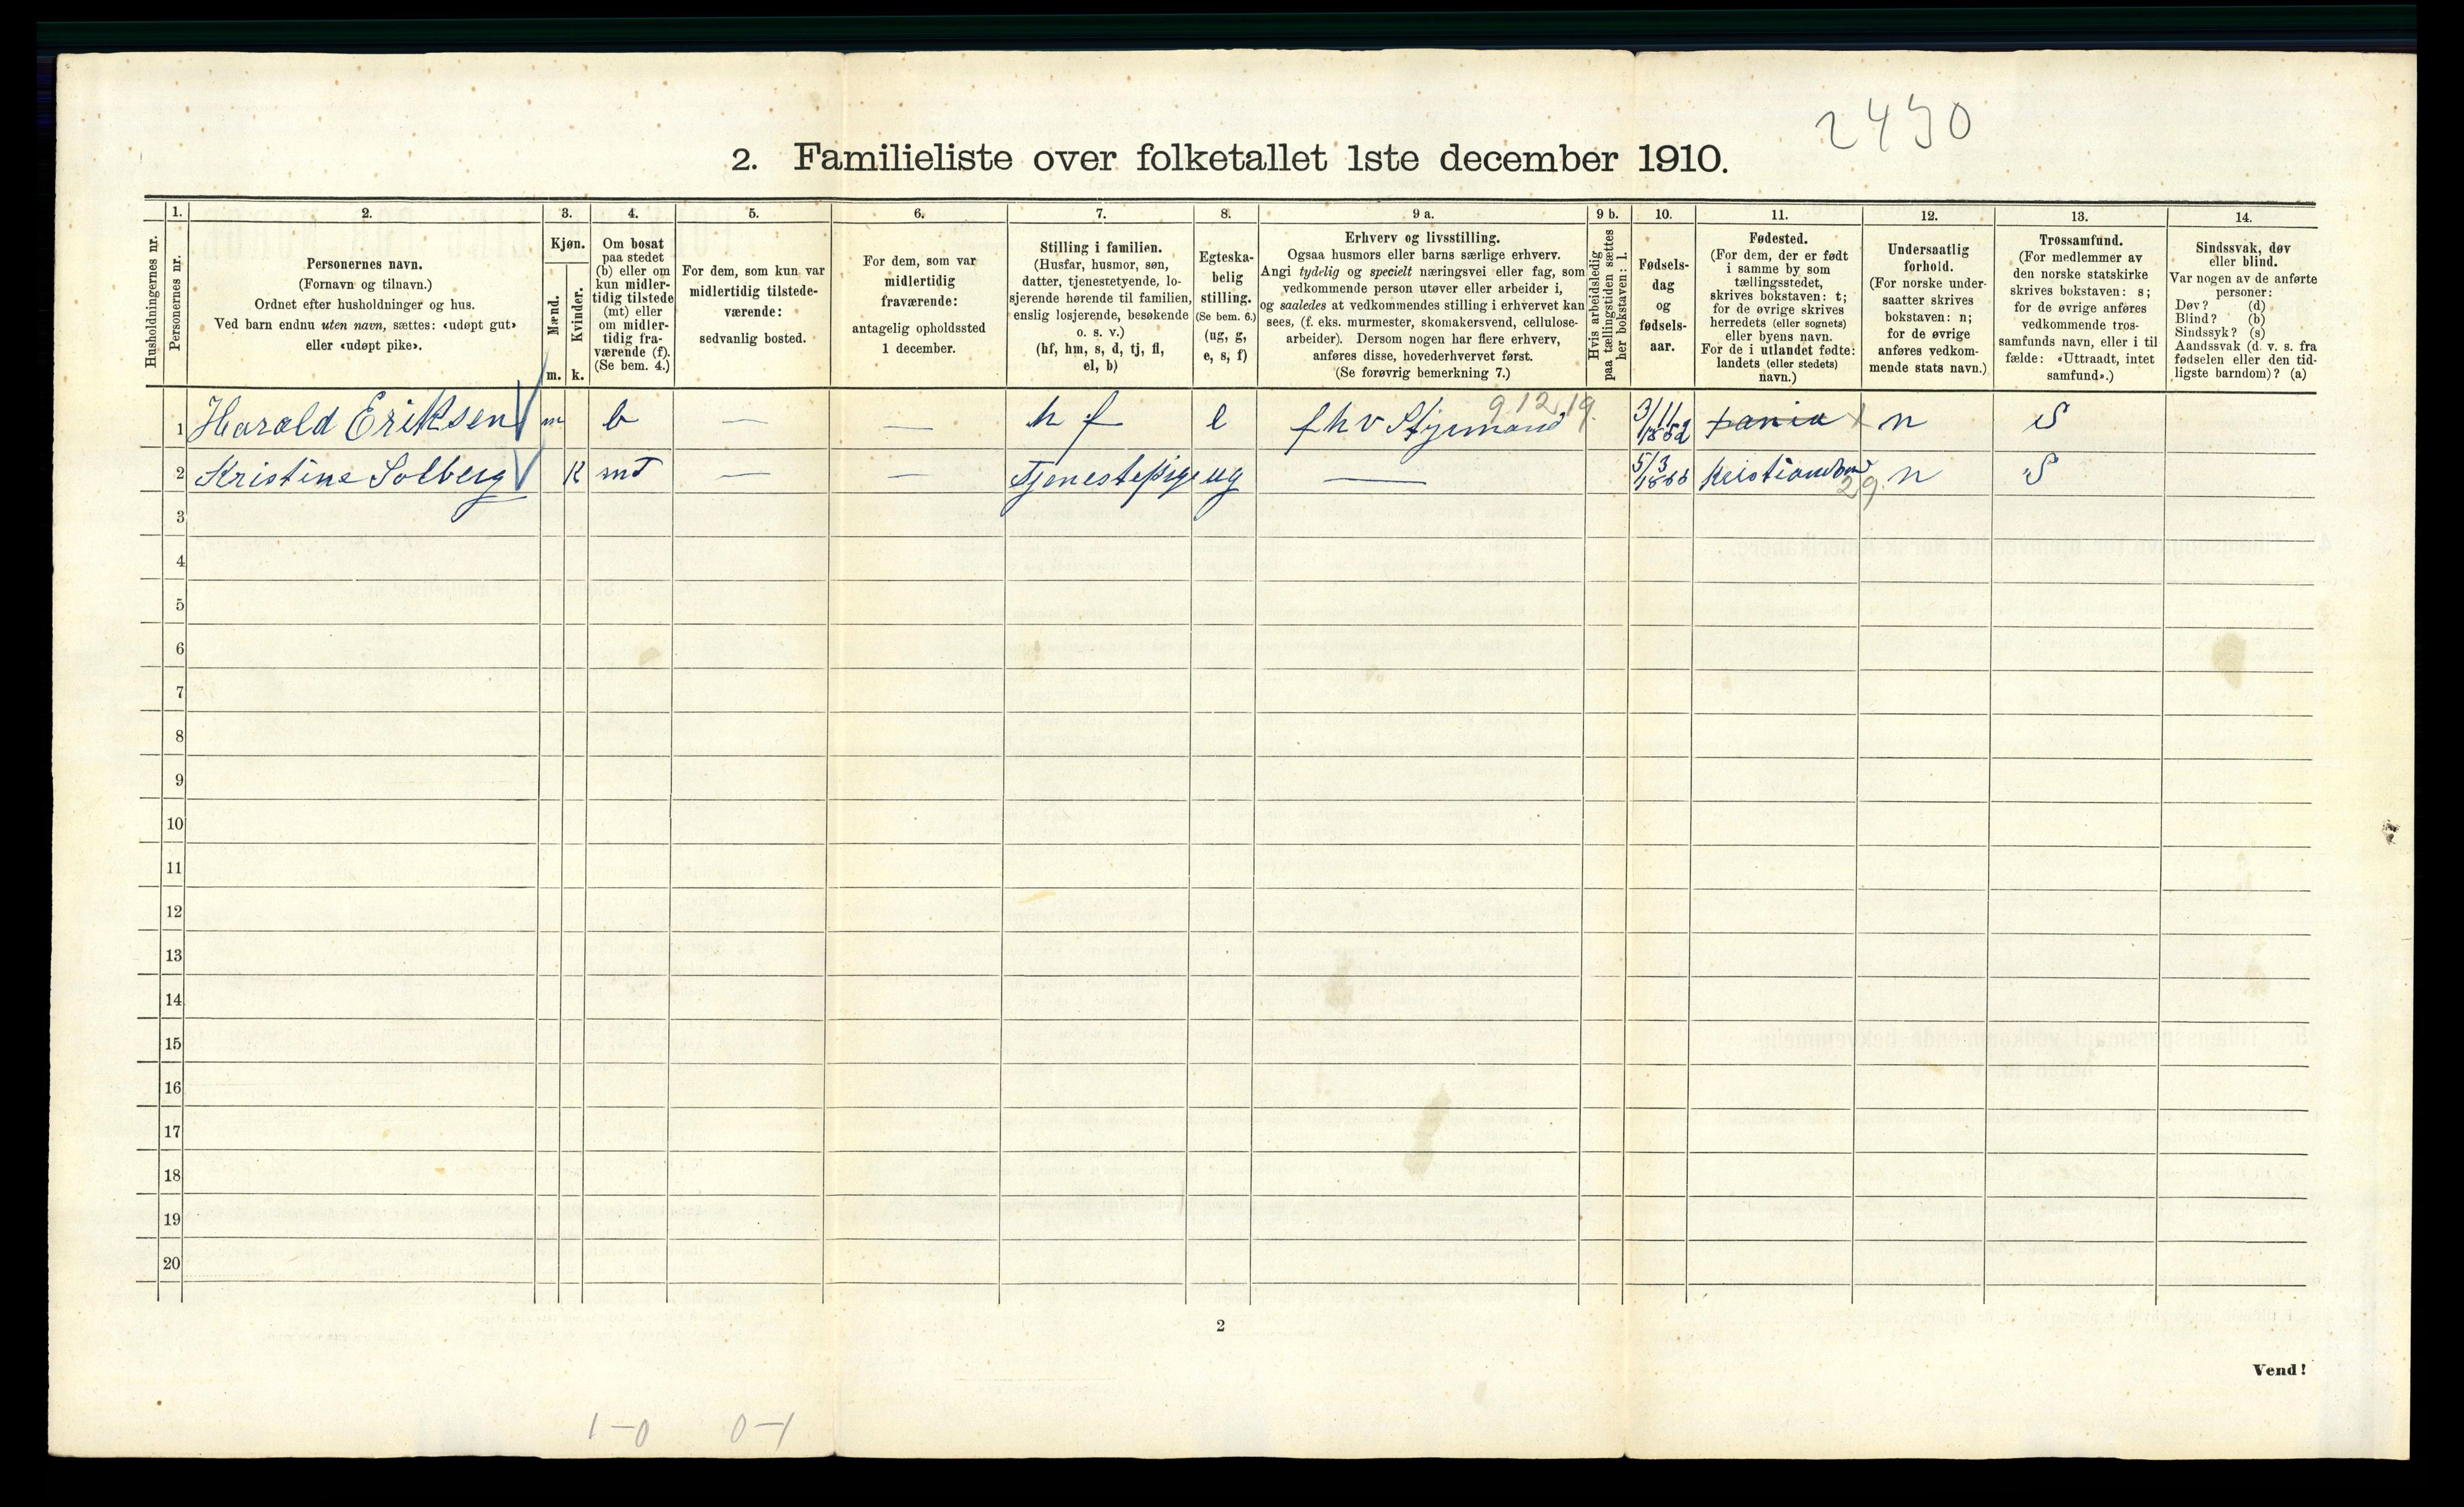 2490
2. Familieliste over folketallet 1ste december 1910.
Husholdningernes nr.
1.
Personernes nr.
2.
Personernes navn.
(Fornavn og tilnavn.)
Ordnet efter husholdninger og hus.
Ved barn endnu uten navn, sættes: «udøpt gut»
eller «udøpt pike».
3.
Kjøn.
Mænd.
Kvinder.
m. k.
4.
Om bosat
paa stedet
(b) eller om
kun midler-
tidig tilstede
(mt) eller
om midler-
tidig fra-
værende (f).
(Se bem. 4.)
5.
For dem, som kun var
midlertidig tilstede-
værende:
sedvanlig bosted.
6.
For dem, som var
midlertidig
fraværende:
antagelig opholdssted
1 december.
7.
Stilling i familien.
(Husfar, husmor, søn,
datter, tjenestetyende, lo-
sjerende hørende til familien,
enslig losjerende, besøkende
o. s. v.)
(hf, hm, s, d, tj, fl,
el, b)
8.
Egteska-
belig
stilling.
(Se bem. 6.)
(ug, g,
e, s, f)
9 a.
Erhverv og livsstilling.
Ogsaa husmors eller barns særlige erhverv.
Angi tydelig og specielt næringsvei eller fag, som
vedkommende person utøver eller arbeider i,
og saaledes at vedkommendes stilling i erhvervet kan
sees, (f. eks. murmester, skomakersvend, cellulose-
arbeider). Dersom nogen har flere erhverv,
anføres disse, hovederhvervet først.
(Se forøvrig bemerkning 7.)
9 b.
Hvis arbeidsledig
paa tællingstiden sættes
her bokstaven: l.
10.
Fødsels-
dag
og
fødsels-
aar.
11.
Fødested.
(For dem, der er født
i samme by som
tællingsstedet,
skrives bokstaven: t;
for de øvrige skrives
herredets (eller sognets)
eller byens navn.
For de i utlandet fødte:
landets (eller stedets)
navn.)
12.
Undersaatlig
forhold.
(For norske under-
saatter skrives
bokstaven: n;
for de øvrige
anføres vedkom-
mende stats navn.)
13.
Trossamfund.
(For medlemmer av
den norske statskirke
skrives bokstaven: s;
for de øvrige anføres
vedkommende tros-
samfunds navn, eller i til
fælde: «Uttraadt, intet
samfund».)
14.
Sindssvak, døv
eller blind.
Var nogen av de anførte
personer:
Døv? (d)
Blind? (b)
Sindssyk? (s)
Aandssvak (d. v. s. fra
fødselen eller den tid-
ligste barndom)? (a)
1 Harald Eriksen m b — — hf e fhv Styrmand 9.12.19. 3/11 1852 t n S
2 Kristine Solberg k mt — — Tjenestepige ug — 5/3 Kristiansund 29. n S
3
4
5
6
7
8
9
10
11
12
13
14
15
16
17
18
19
20
2
Vend!
1—0 0—1